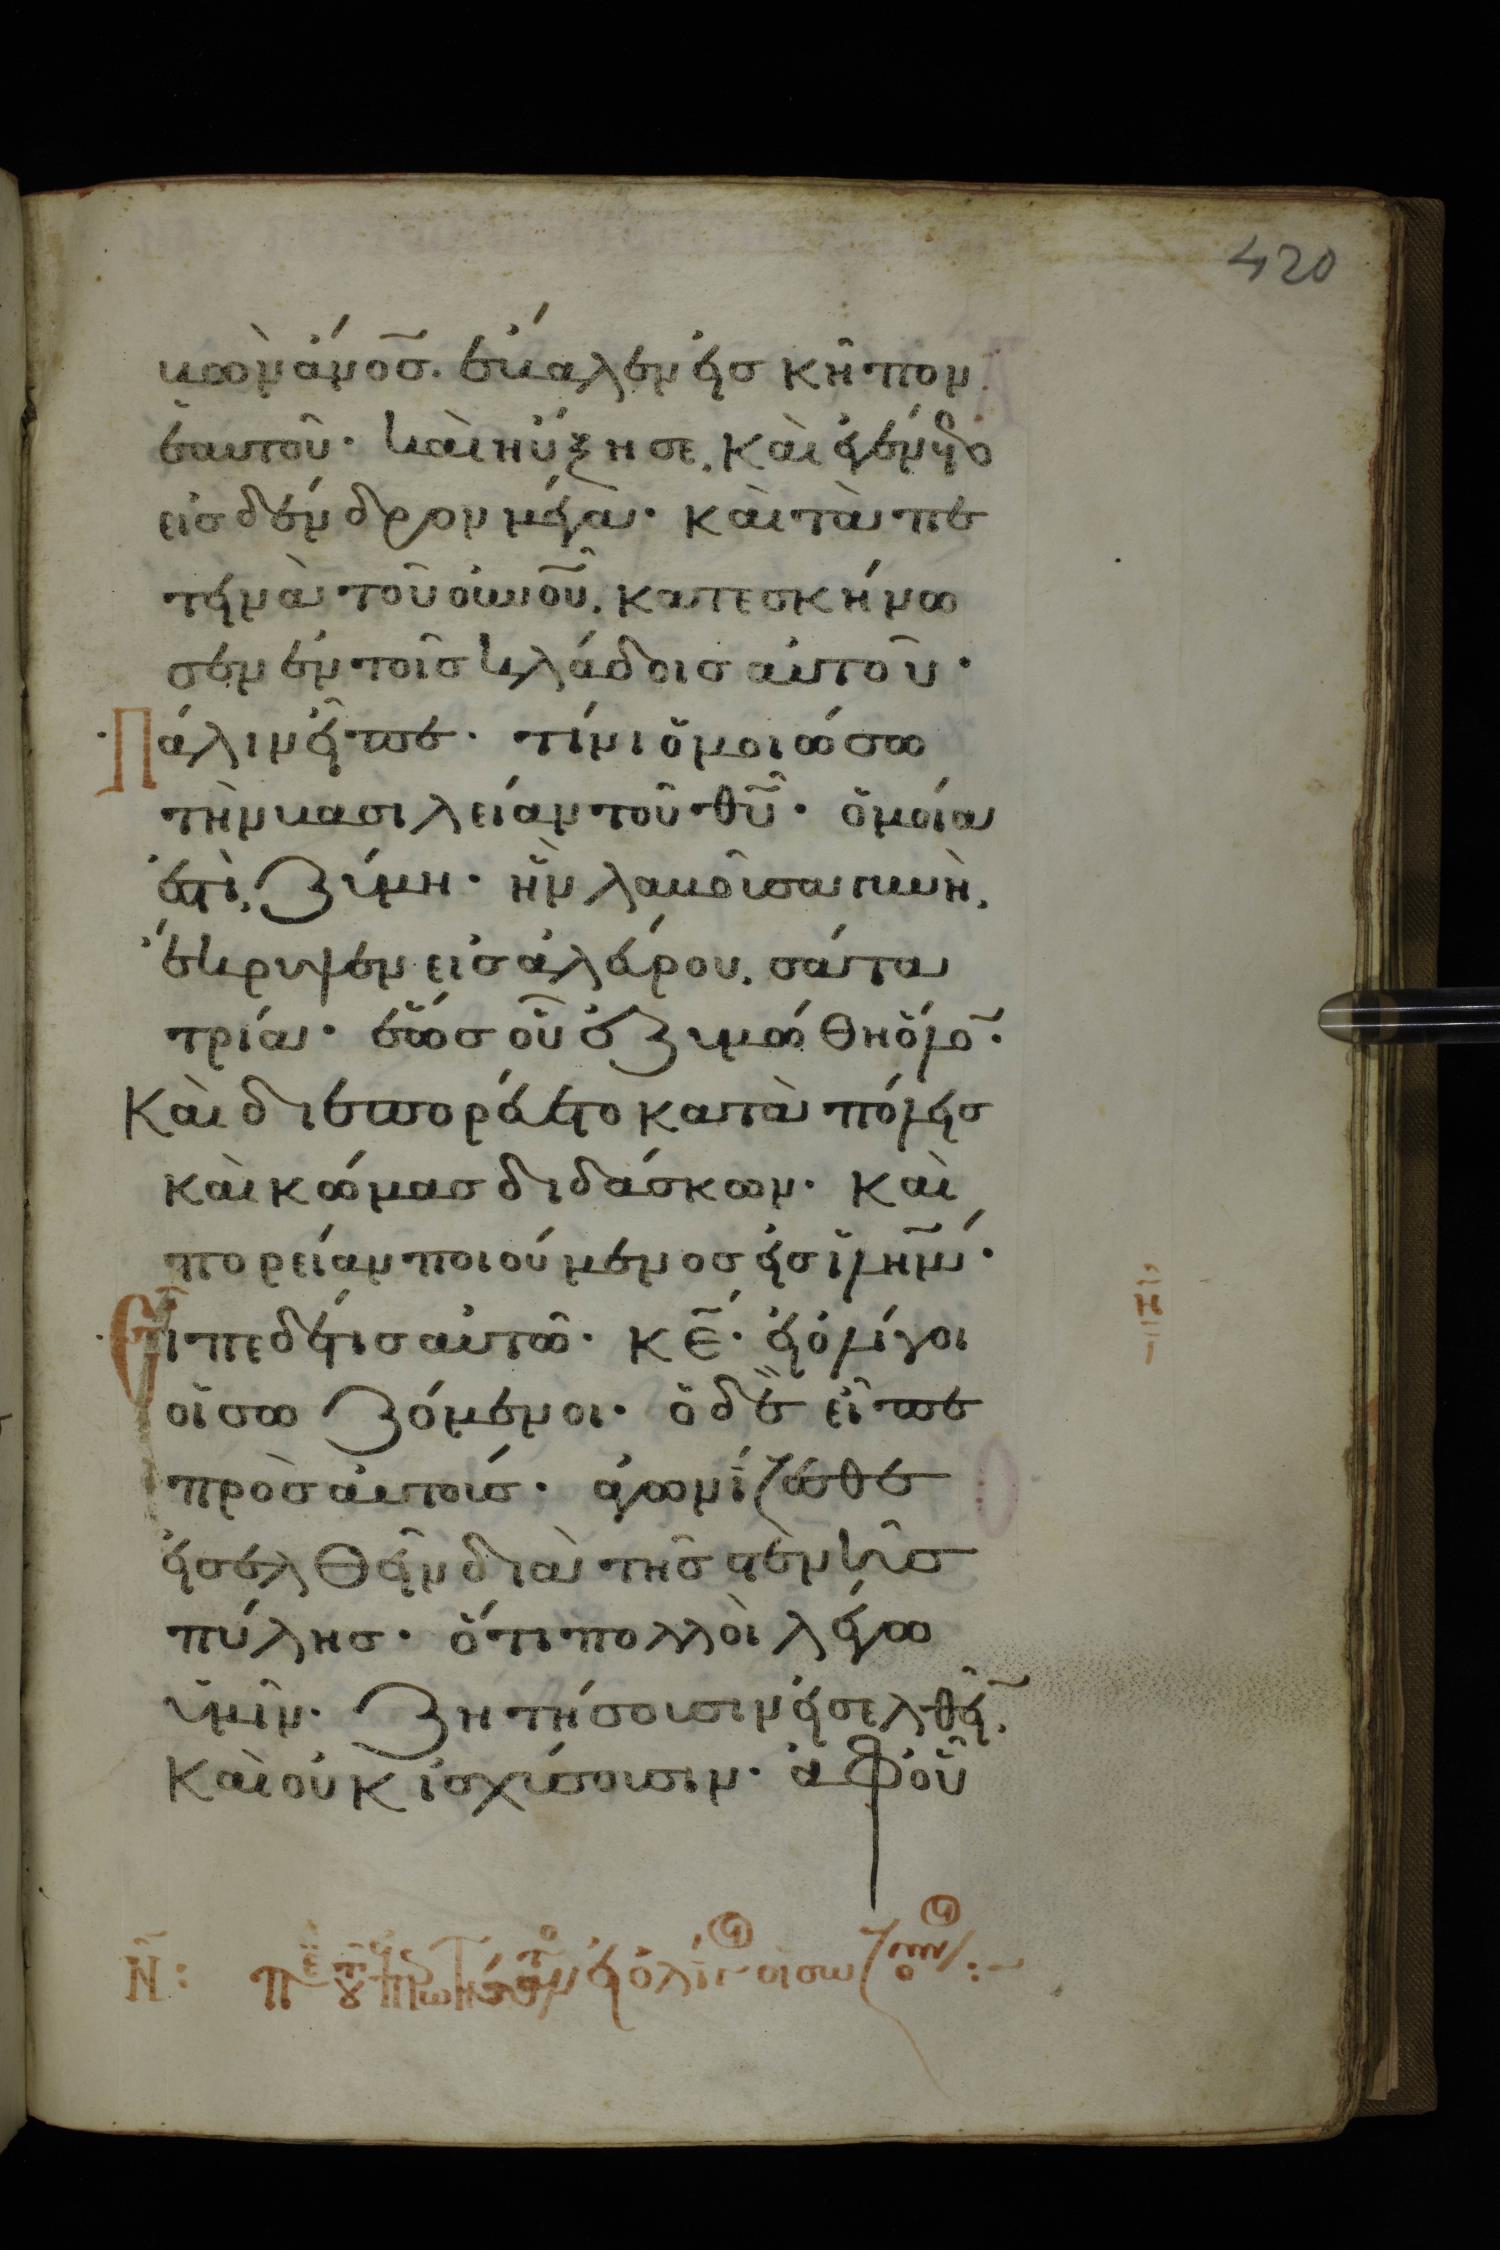 420
βὼν ἄνος. ἔβαλεν εἰς κῆπον
ἑαυτοῦ. καὶ ηὔξησε, καὶ ἐγένετο
εἰς δένδρον μέγα. καὶ τὰ πε
τεινὰ τοῦ οὐνοῦ, κατεσκήνω
σεν ἐν τοῖς κλάδοις αὐτοῦ.
Πάλιν εἶπε. τίνι ὁμοιώσω
τὴν βασιλείαν τοῦ θυ. ὁμοία
ἐστὶ, ζύμη. ἣν λαβοῦσα γυνὴ,
ἔκρυψεν εἰς ἀλεύρου, σάτα
τρία. ἕως οὗ ἐζυμώθη ὅλον.
Καὶ διεπορεύετο κατὰ πόλεις
καὶ κώμας διδάσκων. καὶ
πορείαν ποιούμενος εἰς ἱλημ.
Εἶπε δέ τις αὐτῶ. κε. εἰ ὀλίγοι
οἱ σωζόμενοι. ὁ δὲ εἶπε
πρὸς αὐτούς. ἀγωνίζεσθε
εἰσελθεῖν διὰ τῆς στενῆς
πύλης. ὅτι πολλοὶ λέγω
ὑμῖν. ζητήσουσιν εἰσελθεῖν,
καὶ οὐκ ἰσχύσουσιν. ἀφ οὗ
εἰ ὀλίγοι οἱ σωζόμενοι